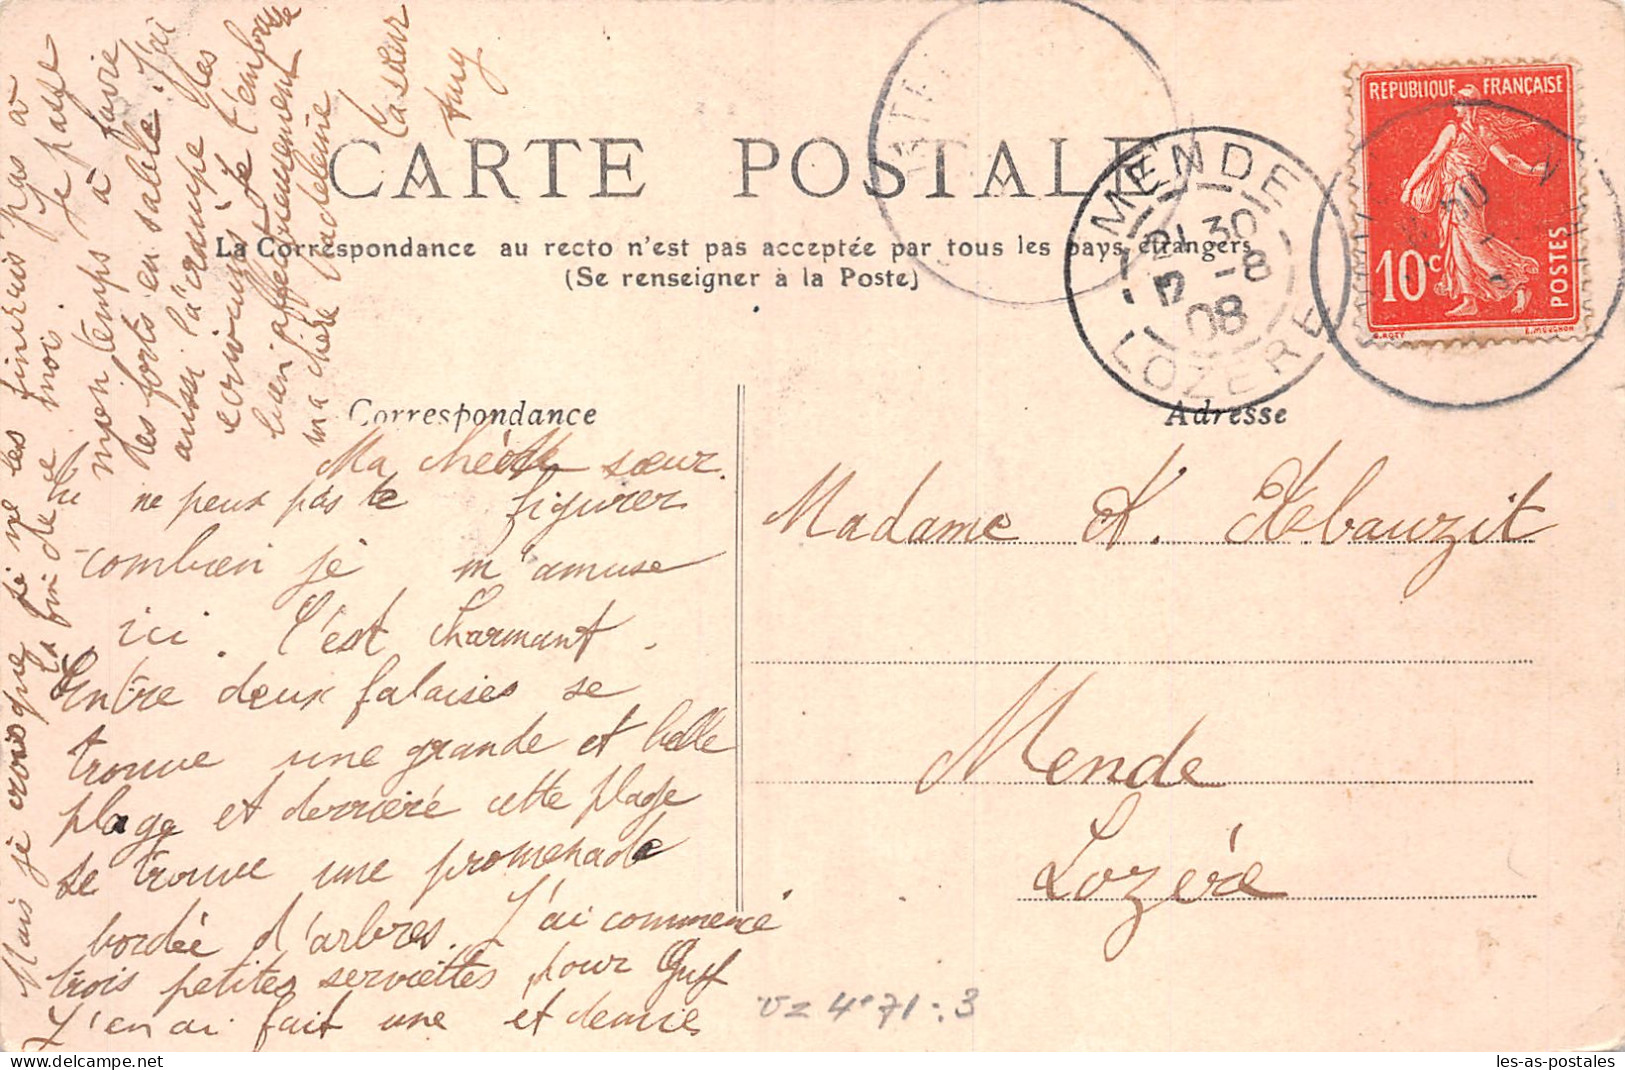 CARTE POSTALE
La Correspondance au recto n'est pas acceptée par tous les pays étrangers
(Se renseigner à la Poste)
REPUBLIQUE FRANÇAISE
10c
POSTES
MENDE
30
-8
08
LOZERE
Correspondance
Adresse
Ma chère sœur.
Tu ne peux pas te figurer
combien je m'amuse
ici. C'est charmant.
Entre deux falaises se
trouve une grande et belle
plage et derrière cette plage
se trouve une promenade
bordée d'arbres. J'ai commencé
trois petites serviettes pour
J'en ai fait une et demie
Mais je crois que je ne les finirais pas à
la fin de ce mois. Je passe
mon temps à faire
des forts en sable. J'ai
aussi la crampe des
écrivains. Je t'embrasse
bien affectueusement
ma chère Madeleine
Ta sœur
Madame A. Abauzit
Mende
Lozère
vz 4°71:3
les-as-postales